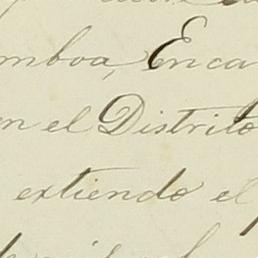 mboa, Enca
en el Distrito
extiende el